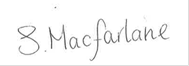 S. Macfarlane